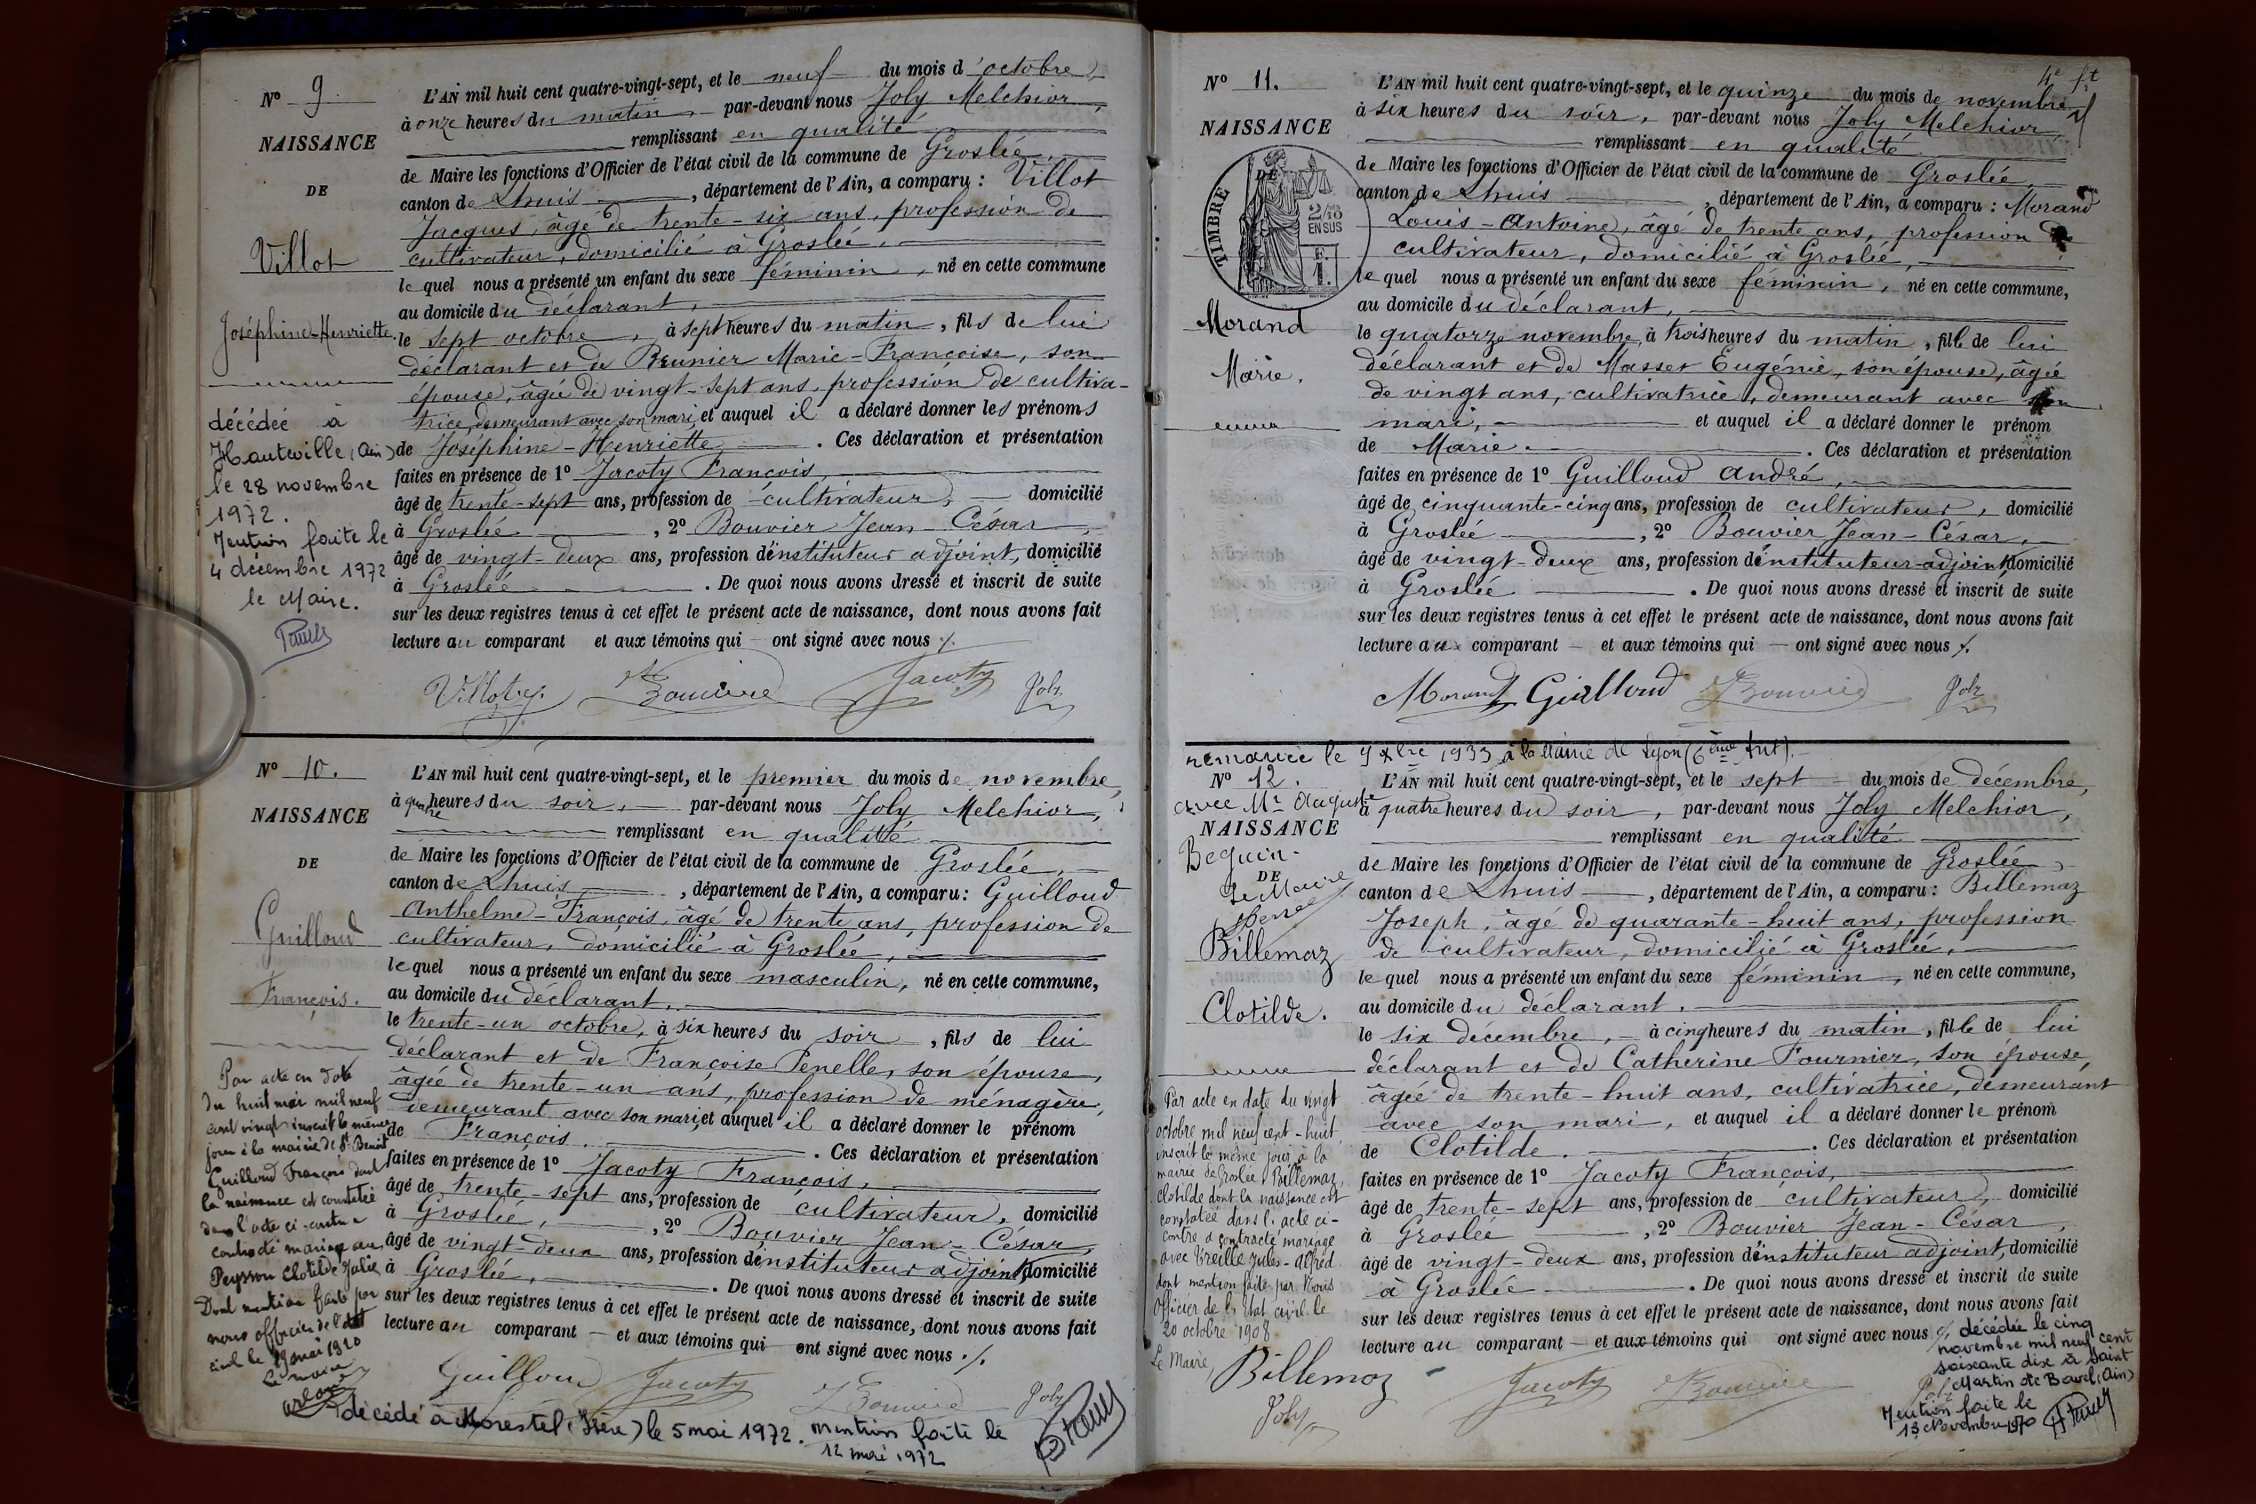 N° 9.
NAISSANCE
DE
Villot
Joséphine-Henriette.
décédée à
Hauteville (Ain)
le 28 novembre
1972.
Mention faite le
4 décembre 1972
le Maire.
L'AN mil huit cent quatre-vingt-sept, et le neuf du mois d'octobre,
à onze heures du matin, par-devant nous Joly Melchior,
remplissant en qualité
de Maire les fonctions d'Officier de l'état civil de la commune de Groslée,
canton de Lhuis, département de l'Ain, a comparu : Villot
Jacques, âgé de trente-six ans, profession de
cultivateur, domicilié à Groslée,
lequel nous a présenté un enfant du sexe féminin, né en cette commune
au domicile du déclarant,
le sept octobre, à sept heures du matin, fils de lui
déclarant et de Brunier Marie-Françoise, son
épouse, âgée de vingt-sept ans, profession de cultiva-
trice, demeurant avec son mari, et auquel il a déclaré donner les prénoms
de Joséphine-Henriette. Ces déclaration et présentation
faites en présence de 1° Jacoty François,
âgé de trente-sept ans, profession de cultivateur, domicilié
à Groslée, 2° Bouvier Jean-César,
âgé de vingt-deux ans, profession d'instituteur adjoint, domicilié
à Groslée. De quoi nous avons dressé et inscrit de suite
sur les deux registres tenus à cet effet le présent acte de naissance, dont nous avons fait
lecture au comparant et aux témoins qui ont signé avec nous ./.
Villot Bouvier Jacoty Joly
N° 10.
NAISSANCE
DE
Guilloud
François.
Par acte en date
du huit mai mil neuf
cent vingt inscrit le même
jour à la mairie de St Benoit
Guilloud François dont
la naissance est constatée
dans l'acte ci-contre a
contracté mariage avec
Peysson Clotilde Julie
Dont mention faite par
nous officier de l'état
civil le mai 1920
Le maire
L'AN mil huit cent quatre-vingt-sept, et le premier du mois de novembre,
à quatre heures du soir, par-devant nous Joly Melchior,
remplissant en qualité
de Maire les fonctions d'Officier de l'état civil de la commune de Groslée,
canton de Lhuis, département de l'Ain, a comparu : Guilloud
Anthelme-François, âgé de trente ans, profession de
cultivateur, domicilié à Groslée,
lequel nous a présenté un enfant du sexe masculin, né en cette commune,
au domicile du déclarant,
le trente-un octobre, à six heures du soir, fils de lui
déclarant et de Françoise Penelle, son épouse,
âgée de trente-un ans, profession de ménagère,
demeurant avec son mari, et auquel il a déclaré donner le prénom
de François. Ces déclaration et présentation
faites en présence de 1° Jacoty François,
âgé de trente-sept ans, profession de cultivateur, domicilié
à Groslée, 2° Bouvier Jean-César,
âgé de vingt-deux ans, profession d'instituteur adjoint, domicilié
à Groslée. De quoi nous avons dressé et inscrit de suite
sur les deux registres tenus à cet effet le présent acte de naissance, dont nous avons fait
lecture au comparant et aux témoins qui ont signé avec nous ./.
Guilloud Jacoty Bouvier Joly
décédé à Morestel (Isère) le 5 mai 1972. mention faite le
12 mai 1972
4e ft
N° 11.
NAISSANCE
DE
TIMBRE
2/10 EN SUS
F. 1.
Morand
Marie.
L'AN mil huit cent quatre-vingt-sept, et le quinze du mois de novembre
à six heures du soir, par-devant nous Joly Melchior,
remplissant en qualité
de Maire les fonctions d'Officier de l'état civil de la commune de Groslée,
canton de Lhuis, département de l'Ain, a comparu : Morand
Louis-Antoine, âgé de trente ans, profession de
cultivateur, domicilié à Groslée,
lequel nous a présenté un enfant du sexe féminin, né en cette commune,
au domicile du déclarant,
le quatorze novembre, à trois heures du matin, fille de lui
déclarant et de Masset Eugénie, son épouse, âgée
de vingt ans, cultivatrice, demeurant avec son
mari, et auquel il a déclaré donner le prénom
de Marie. Ces déclaration et présentation
faites en présence de 1° Guilloud André,
âgé de cinquante-cinq ans, profession de cultivateur, domicilié
à Groslée, 2° Bouvier Jean-César,
âgé de vingt-deux ans, profession d'instituteur-adjoint domicilié
à Groslée. De quoi nous avons dressé et inscrit de suite
sur les deux registres tenus à cet effet le présent acte de naissance, dont nous avons fait
lecture au comparant et aux témoins qui ont signé avec nous ./.
Morand Guilloud Bouvier Joly
remariée le 9 xbre 1933 à la Mairie de Lyon (6ème Arrt).
avec Mr Auguste
Beguin.
Le Maire
N° 12.
NAISSANCE
DE
Billemaz
Clotilde.
Par acte en date du vingt
octobre mil neuf cent-huit,
inscrit le même jour à la
mairie de Groslée, Billemaz,
Clotilde dont la naissance est
constatée dans l'acte ci-
contre a contracté mariage
avec Vreille Jules-Alfred
dont mention faite par Nous
Officier de l'Etat civil le
20 octobre 1908
Le Maire,
L'AN mil huit cent quatre-vingt-sept, et le sept du mois de décembre,
à quatre heures du soir, par-devant nous Joly Melchior,
remplissant en qualité
de Maire les fonctions d'Officier de l'état civil de la commune de Groslée,
canton de Lhuis, département de l'Ain, a comparu : Billemaz
Joseph, âgé de quarante-huit ans, profession
de cultivateur, domicilié à Groslée,
lequel nous a présenté un enfant du sexe féminin, né en cette commune,
au domicile du déclarant.
le six décembre, à cinq heures du matin, fille de lui
déclarant et de Catherine Fournier, son épouse,
âgée de trente-huit ans, cultivatrice, demeurant
avec son mari, et auquel il a déclaré donner le prénom
de Clotilde. Ces déclaration et présentation
faites en présence de 1° Jacoty François,
âgé de trente-sept ans, profession de cultivateur, domicilié
à Groslée, 2° Bouvier Jean-César,
âgé de vingt-deux ans, profession d'instituteur adjoint, domicilié
à Groslée. De quoi nous avons dressé et inscrit de suite
sur les deux registres tenus à cet effet le présent acte de naissance, dont nous avons fait
lecture au comparant et aux témoins qui ont signé avec nous ./.
Billemaz Jacoty Bouvier Joly
Joly
décédée le cinq
novembre mil neuf cent
soixante dix à Saint
Martin de Bavel (Ain)
Mention faite le
13 Novembre 1970